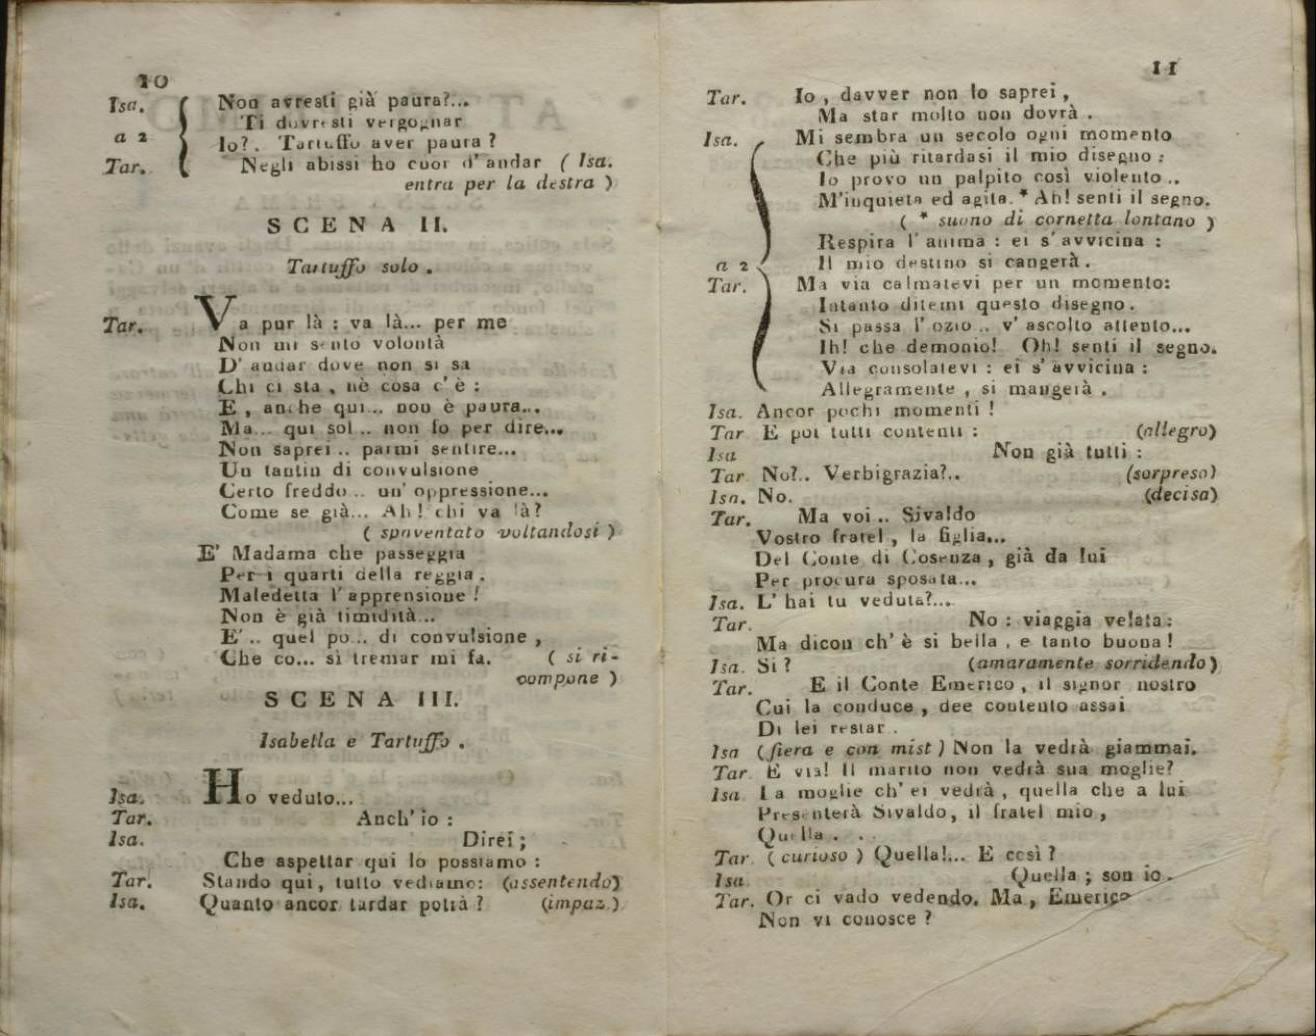 10
Isa. Non avresti già paura?...
Ti dovresti vergognar
a 2
Io?. Tartuffo aver paura ?
Tar. Negli abissi ho cuor d'andar ( Isa.
entra per la destra )
SCENA II.
Tartuffo solo .
Tar. Va pur là : va là... per me
Non mi sento volontà
D' andar dove non si sa
Chi ci sta , nè cosa c'è :
E , anche qui... non è paura...
Ma... qui sol .. non fo per dire...
Non saprei .. parmi sentire...
Un tantin di convulsione
Certo freddo .. un' oppressione...
Come se già... Ah! chi va là?
( spaventato voltandosi )
E' Madama che passeggia
Per i quarti della reggia .
Maledetta l'apprensione !
Non è già timidità...
E' .. quel po... di convulsione ,
Che co... sì tremar mi fa. ( si ri-
compone )
SCENA III.
Isabella e Tartuffo .
Isa. Ho veduto...
Tar. Anch' io :
Isa. Direi ;
Che aspettar qui lo possiamo :
Tar. Stando qui, tutto vediamo: (assentendo)
Isa. Quanto ancor tardar potrà ? (impaz.)
11
Tar. Io , davver non lo saprei ,
Ma star molto non dovrà .
Isa. Mi sembra un secolo ogni momento
Che più ritardasi il mio disegno :
Io provo un palpito così violento ..
M'inquieta ed agita. * Ah! senti il segno.
( * suono di cornetta lontano )
Respira l' anima : ei s' avvicina :
a 2 Il mio destino si cangerà .
Tar. Ma via calmatevi per un momento:
Intanto ditemi questo disegno .
Si passa l' ozio .. v' ascolto attento...
Ih! che demonio! Oh! senti il segno.
Via consolatevi : ei s' avvicina :
Allegramente , si mangerà .
Isa. Ancor pochi momenti !
Tar E poi tutti contenti : (allegro)
Isa Non già tutti :
Tar No?.. Verbigrazia?.. (sorpreso)
Isa. No. (decisa)
Tar. Ma voi .. Sivaldo
Vostro fratel , la figlia...
Del Conte di Cosenza , già da lui
Per procura sposata...
Isa. L' hai tu veduta?...
Tar. No : viaggia velata :
Ma dicon ch' è si bella , e tanto buona !
Isa. Si ? (amaramente sorridendo)
Tar. E il Conte Emerico , il signor nostro
Cui la conduce , dee contento assai
Di lei restar .
Isa (fiera e con mist) Non la vedrà giammai.
Tar E via! Il marito non vedrà sua moglie?
Isa La moglie ch' ei vedrà , quella che a lui
Presenterà Sivaldo, il fratel mio ,
Quella . . .
Tar. ( curioso ) Quella!... E così ?
Isa Quella ; son io .
Tar. Or ci vado vedendo. Ma , Emerico
Non vi conosce ?